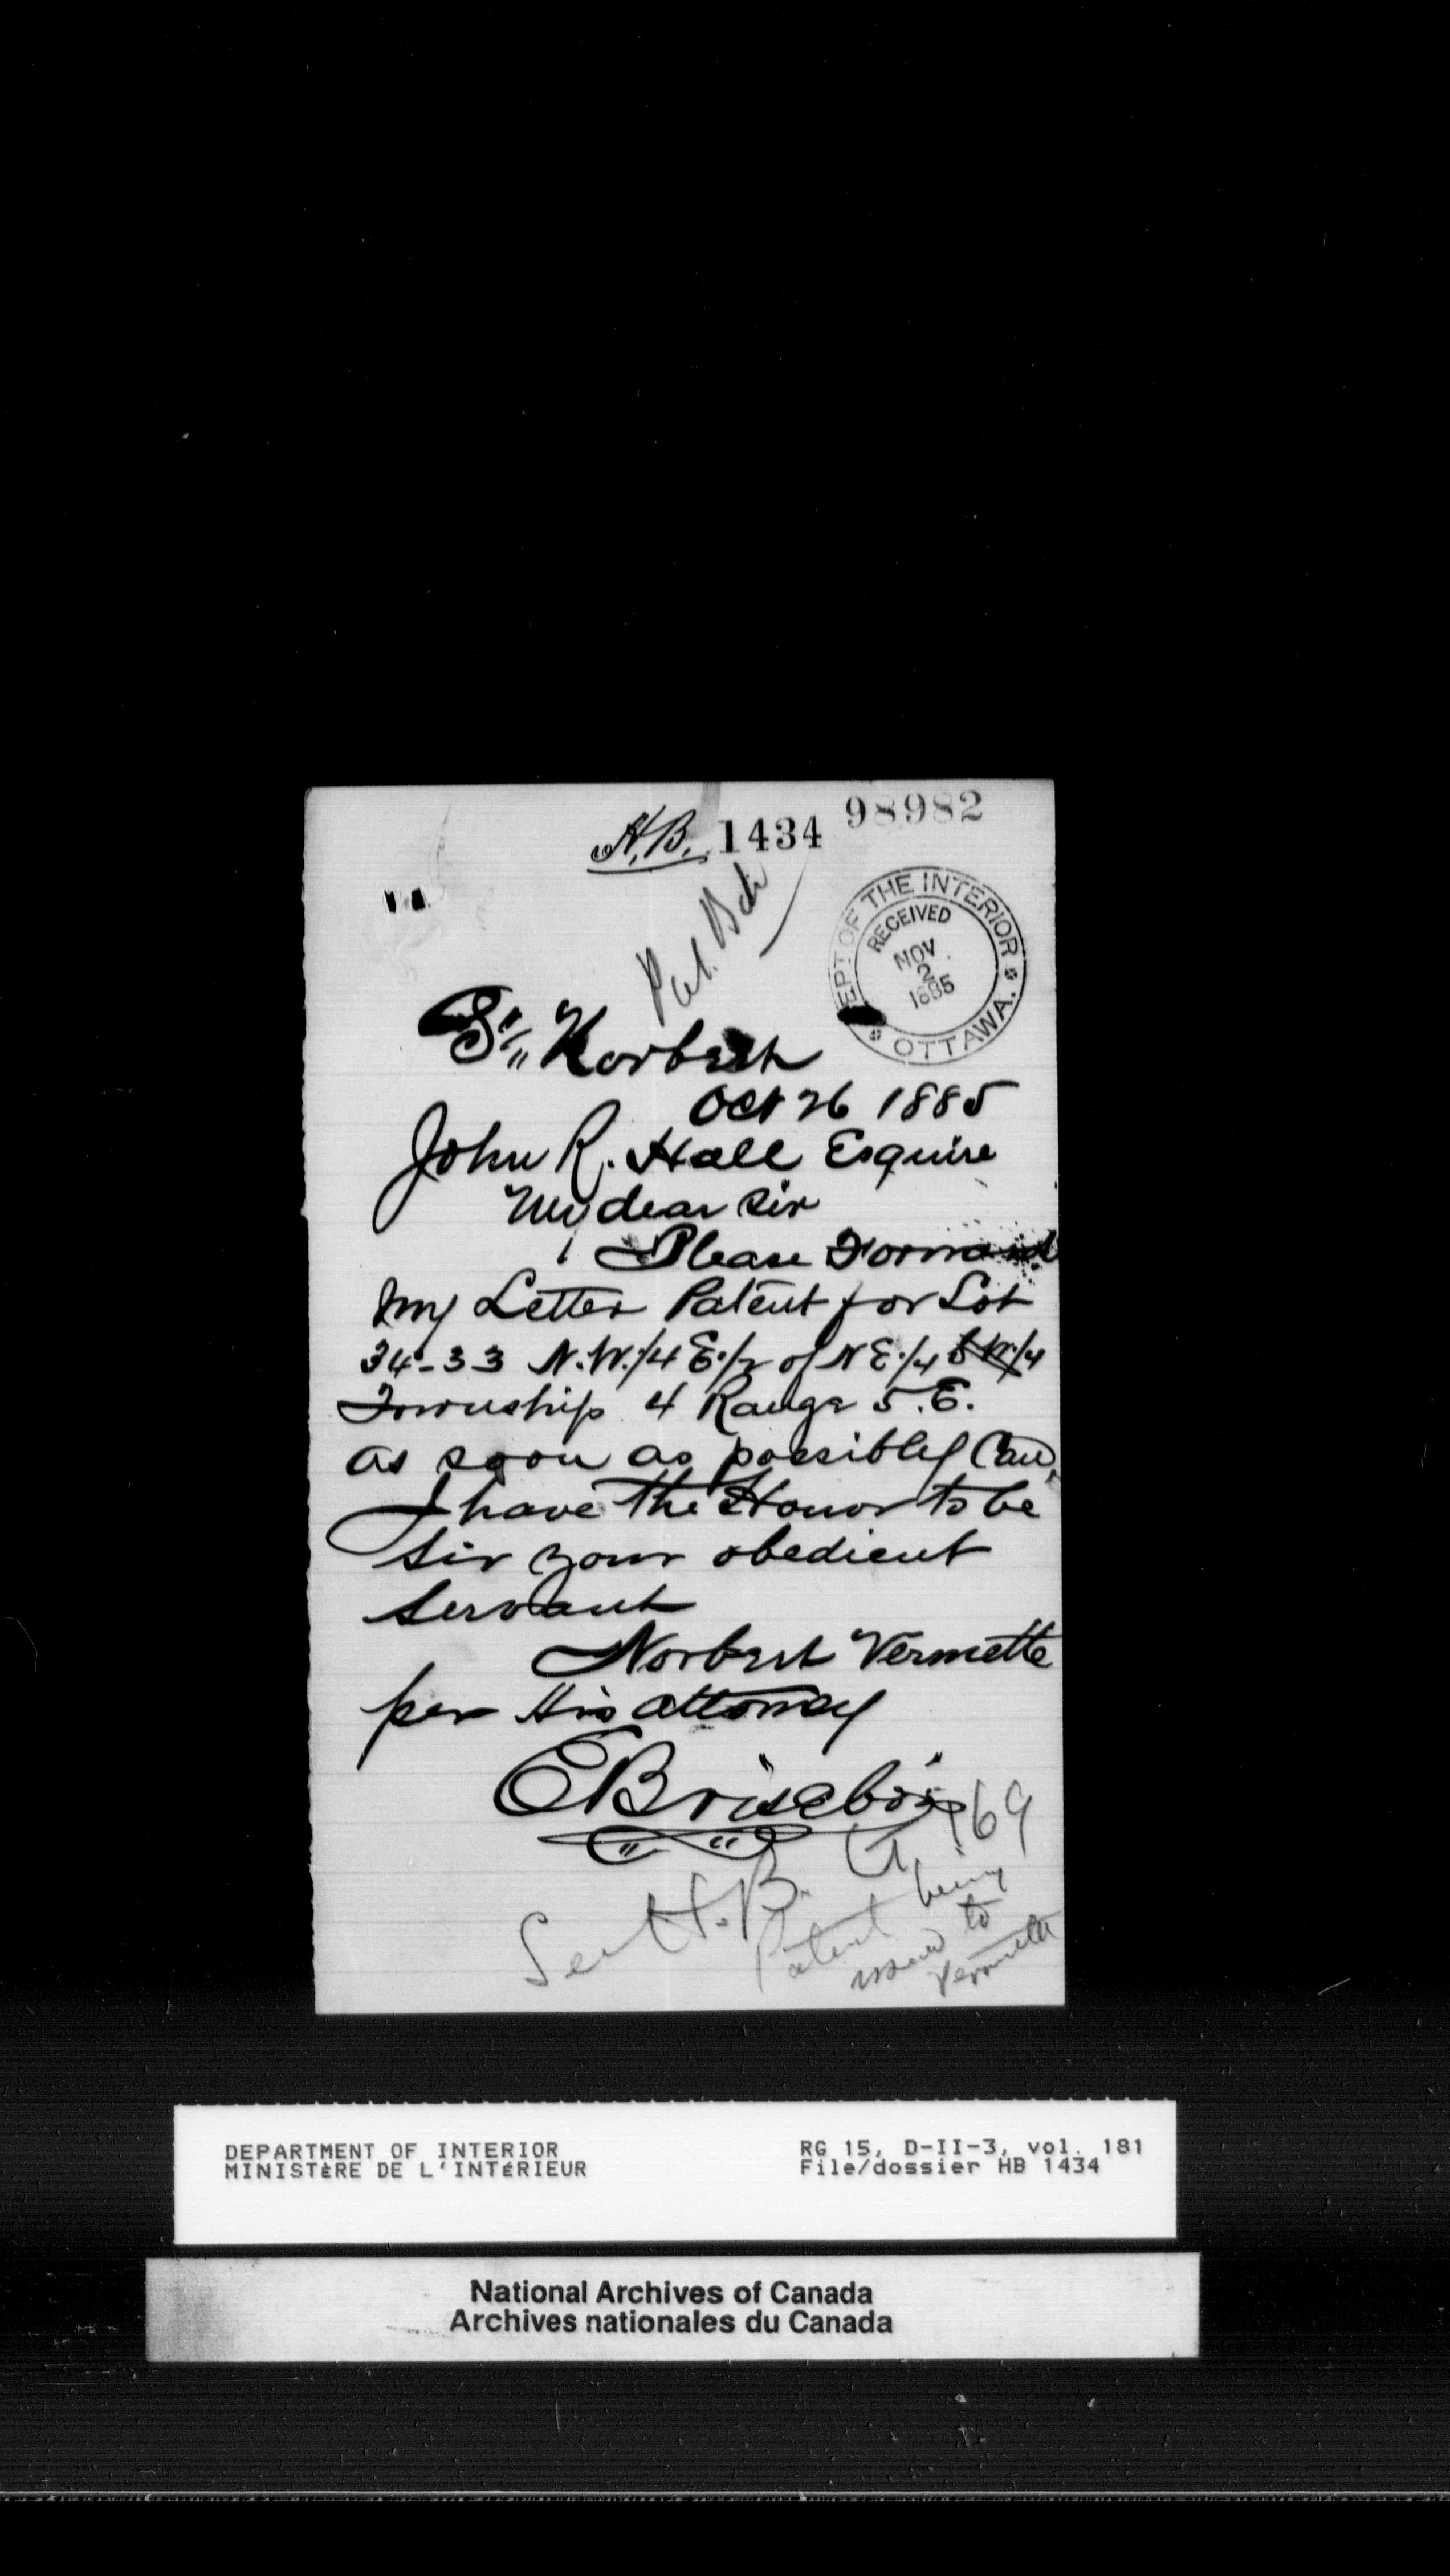 H.B. 1434 98982
DEPT OF THE INTERIOR
RECEIVED
NOV.
2
1885
OTTAWA.
St. Norbert
Oct 26 1885
John R. Hall Esquire
My dear Sir
Please Forward
my Letter Patent for Lot
34-33 N.W. 1/4 E. 1/2 of N E. 1/4
Township 4 Range 5. E.
as soon as possibly Can,
I have the Honor to be
Sir your obedient
Servant
Norbert Vermette
per His attorney
E Brisebois
See H.B. 169
Patent being
issued to
Vermette
DEPARTMENT OF INTERIOR
MINISTÈRE DE L'INTÉRIEUR
RG 15, D-II-3, vol. 181
File/dossier HB 1434
National Archives of Canada
Archives nationales du Canada